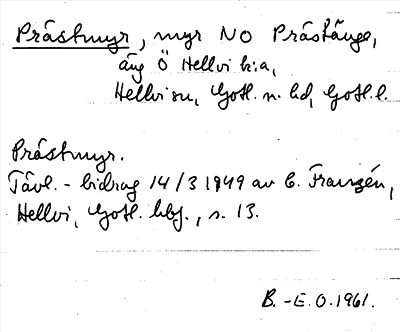 Prästmyr, myr NO Prästänge,
äng Ö Hellvi k:a,
Hellvi sn, Gotl. n. hd, Gotl. l.
Prästmyr.
Tävl.-bidrag 14/3 1949 av C. Franzén,
Hellvi, Gotl. hbf., s. 13.
B.-E.O. 1961.